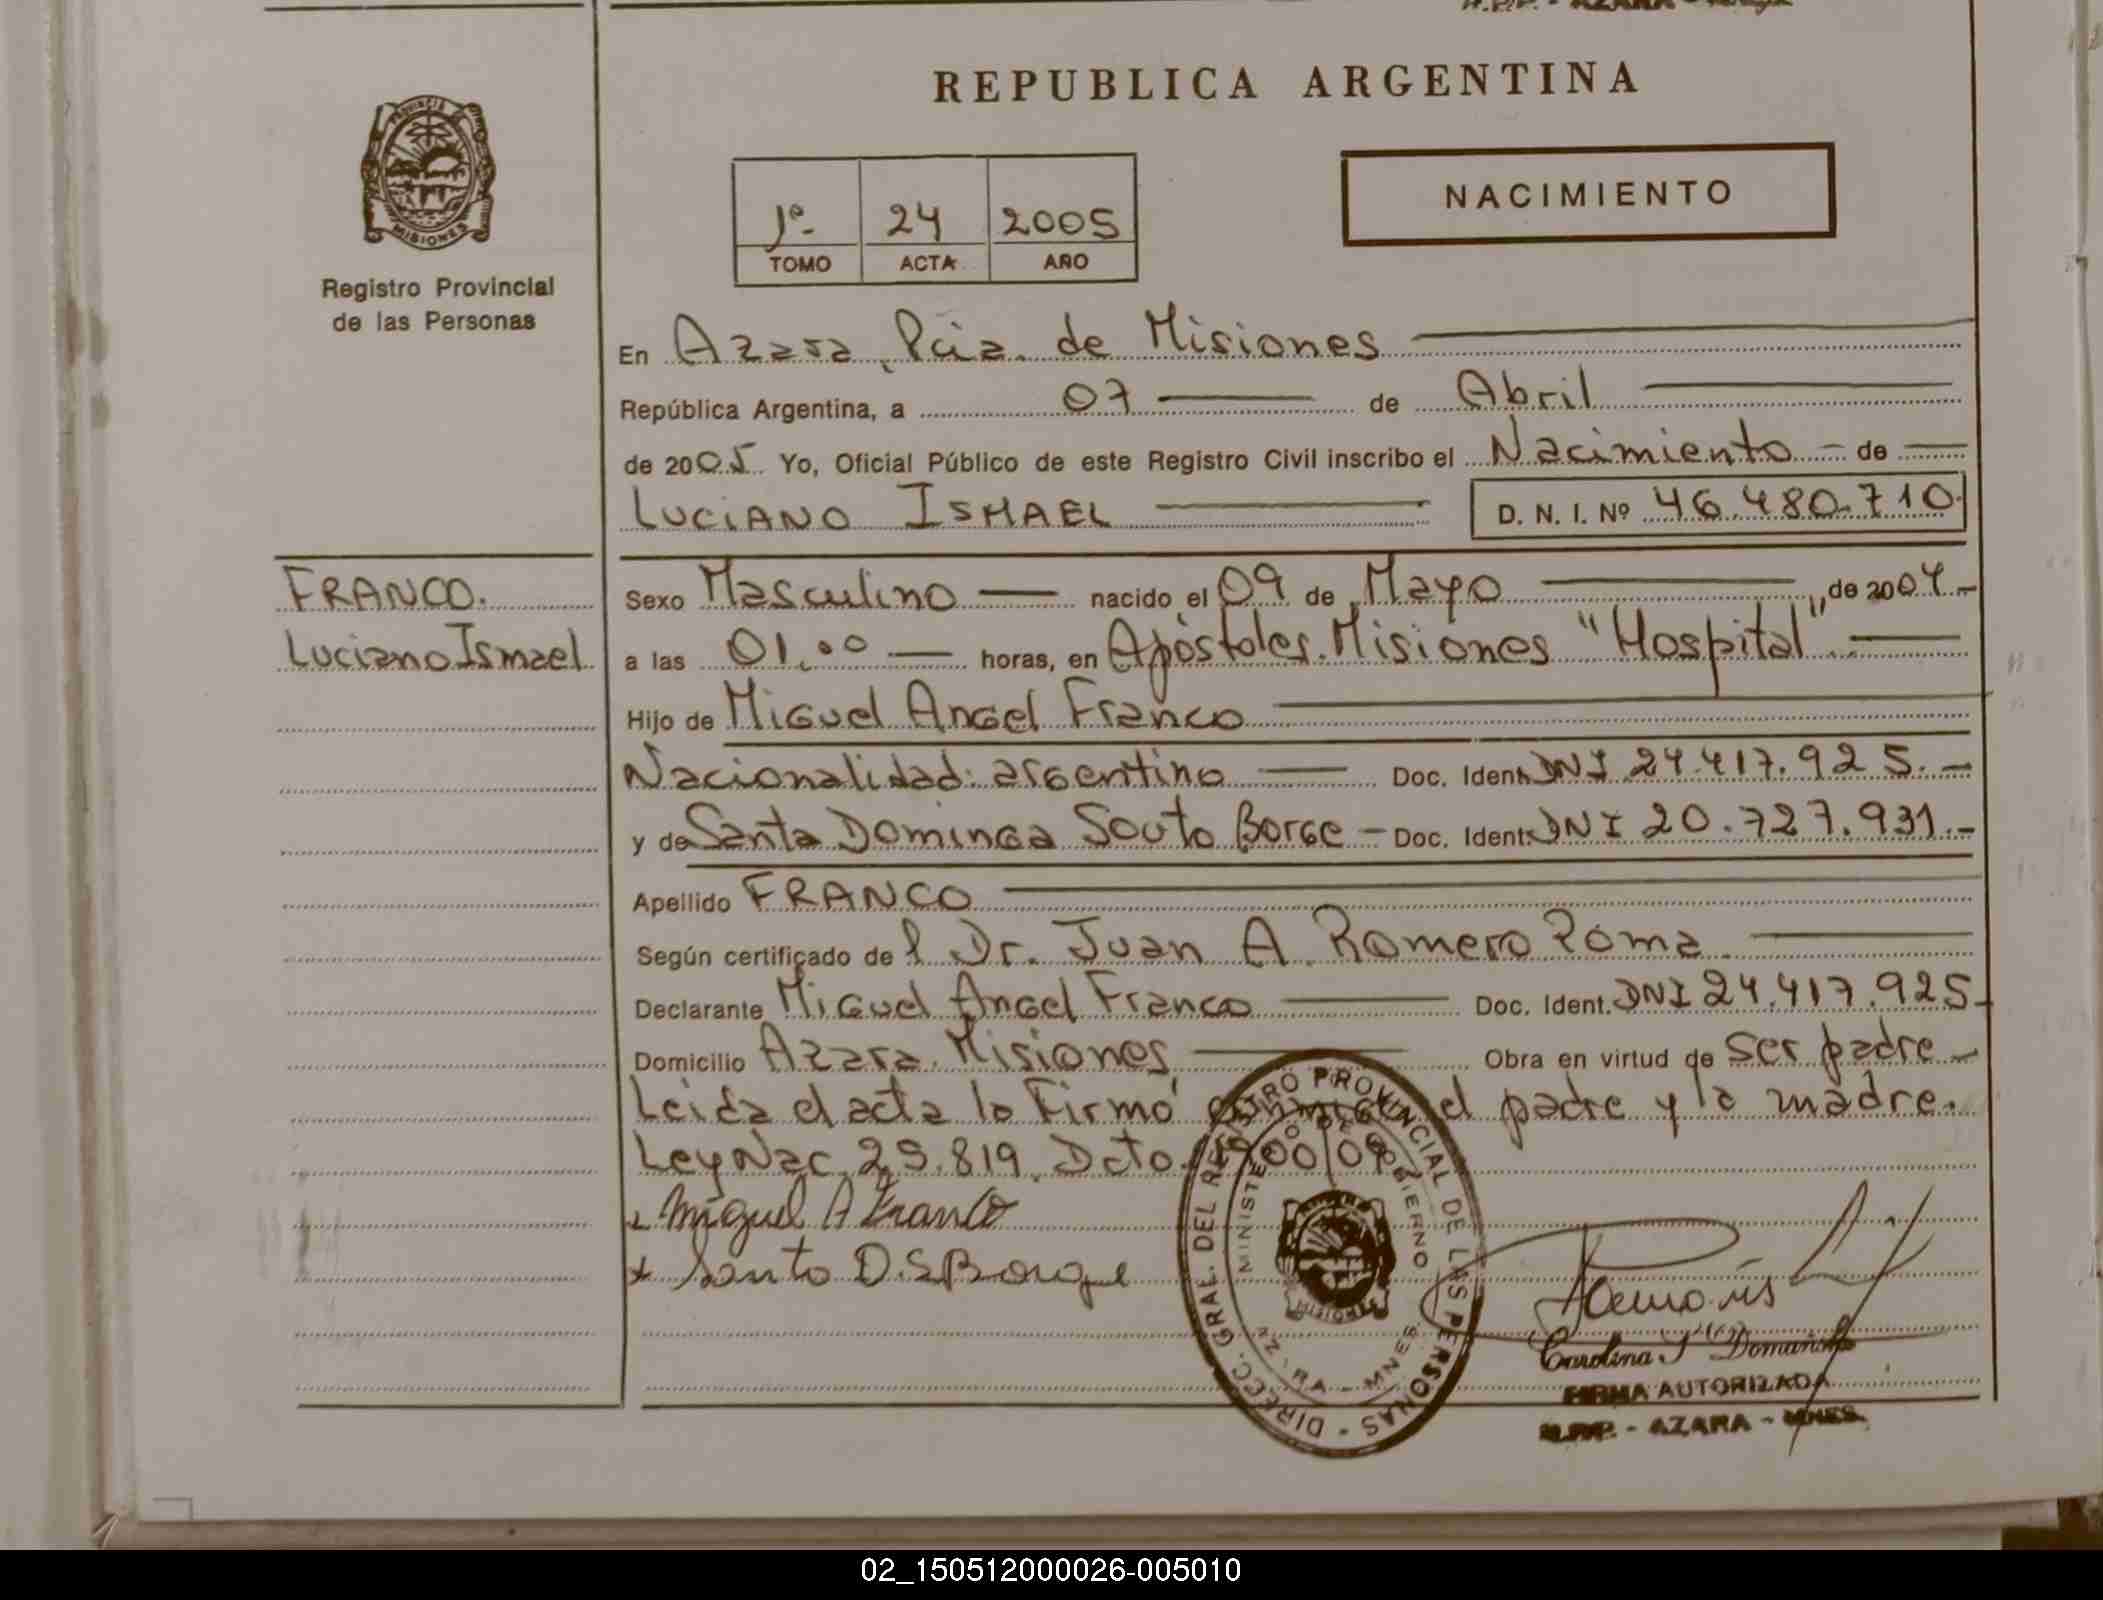 REPUBLICA ARGENTINA
PROVINCIA
MISIONES
Registro Provincial
de las Personas
1º- 24 2005
TOMO ACTA AÑO
NACIMIENTO
En Azara, Pcia. de Misiones
República Argentina, a 07 de Abril
de 2005 Yo, Oficial Público de este Registro Civil inscribo el Nacimiento - de
LUCIANO ISMAEL D. N. I. Nº 46.480.710.
FRANCO.
Luciano Ismael
Sexo Masculino nacido el 09 de Mayo , de 2004.-
a las 01,00 horas, en Apóstoles. Misiones "Hospital".
Hijo de Miguel Angel Franco
Nacionalidad: argentino Doc. Ident. DNI 24.417.925.-
y de Santa Dominga Souto Borge - Doc. Ident. DNI 20.727.931.-
Apellido FRANCO
Según certificado de l Dr. Juan A. Romero Poma
Declarante Miguel Angel Franco Doc. Ident. DNI 24.417.925-
Domicilio Azara. Misiones Obra en virtud de ser padre -
Leida el acta la Firmó conmigo el padre y la madre.
Ley Nac. 25.819. Dcto.
Miguel A Franco
Santa D. S Borge
DIRECC. GRAL. DEL REGISTRO PROVINCIAL DE LAS PERSONAS -
MINISTERIO DE GOBIERNO
AZARA - MNES
Carolina Domanski
FIRMA AUTORIZADA
R.P.P. - AZARA - MNES.
02_150512000026-005010